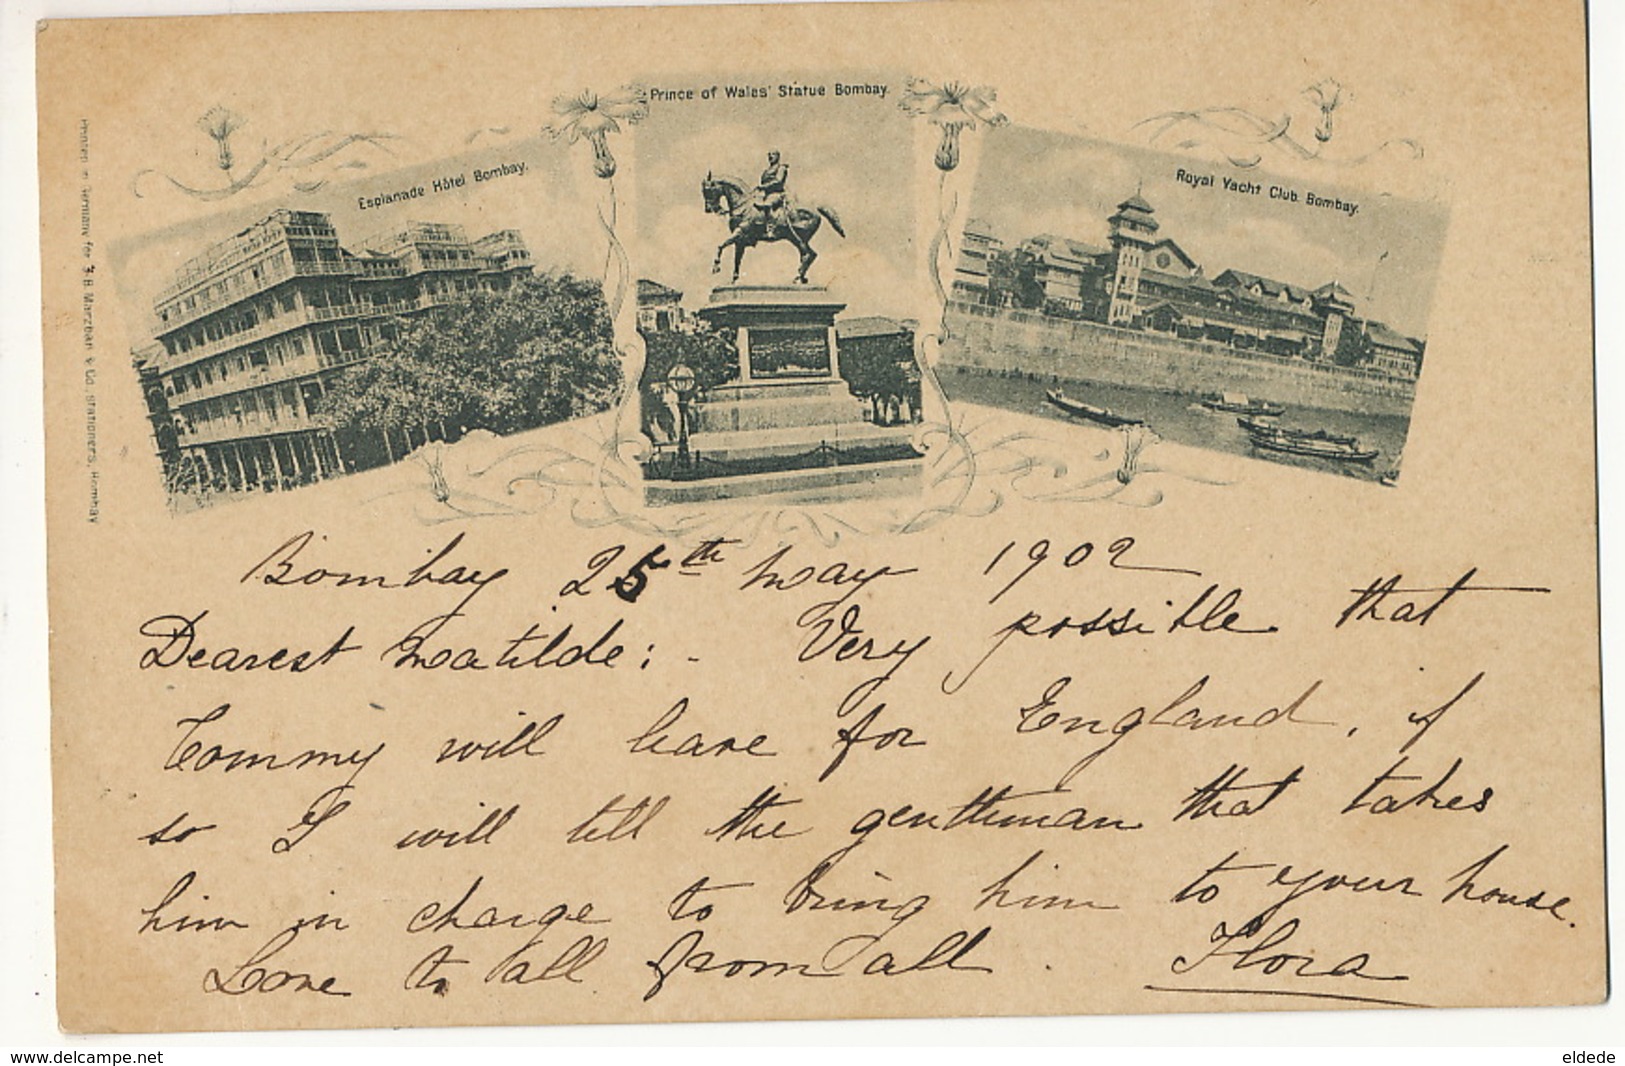 Prince of Wales' Statue Bombay.
Esplanade Hôtel Bombay.
Royal Yacht Club. Bombay.
Printed in Germany for J.B. Marzban & Co, stationers, Bombay
Bombay 25th May 1902
Dearest Matilde : - Very possible that
Tommy will leave for England, if
so I will tell the gentleman that takes
him in charge to bring him to your house.
Love to all from all. Flora
www.delcampe.net
eldede